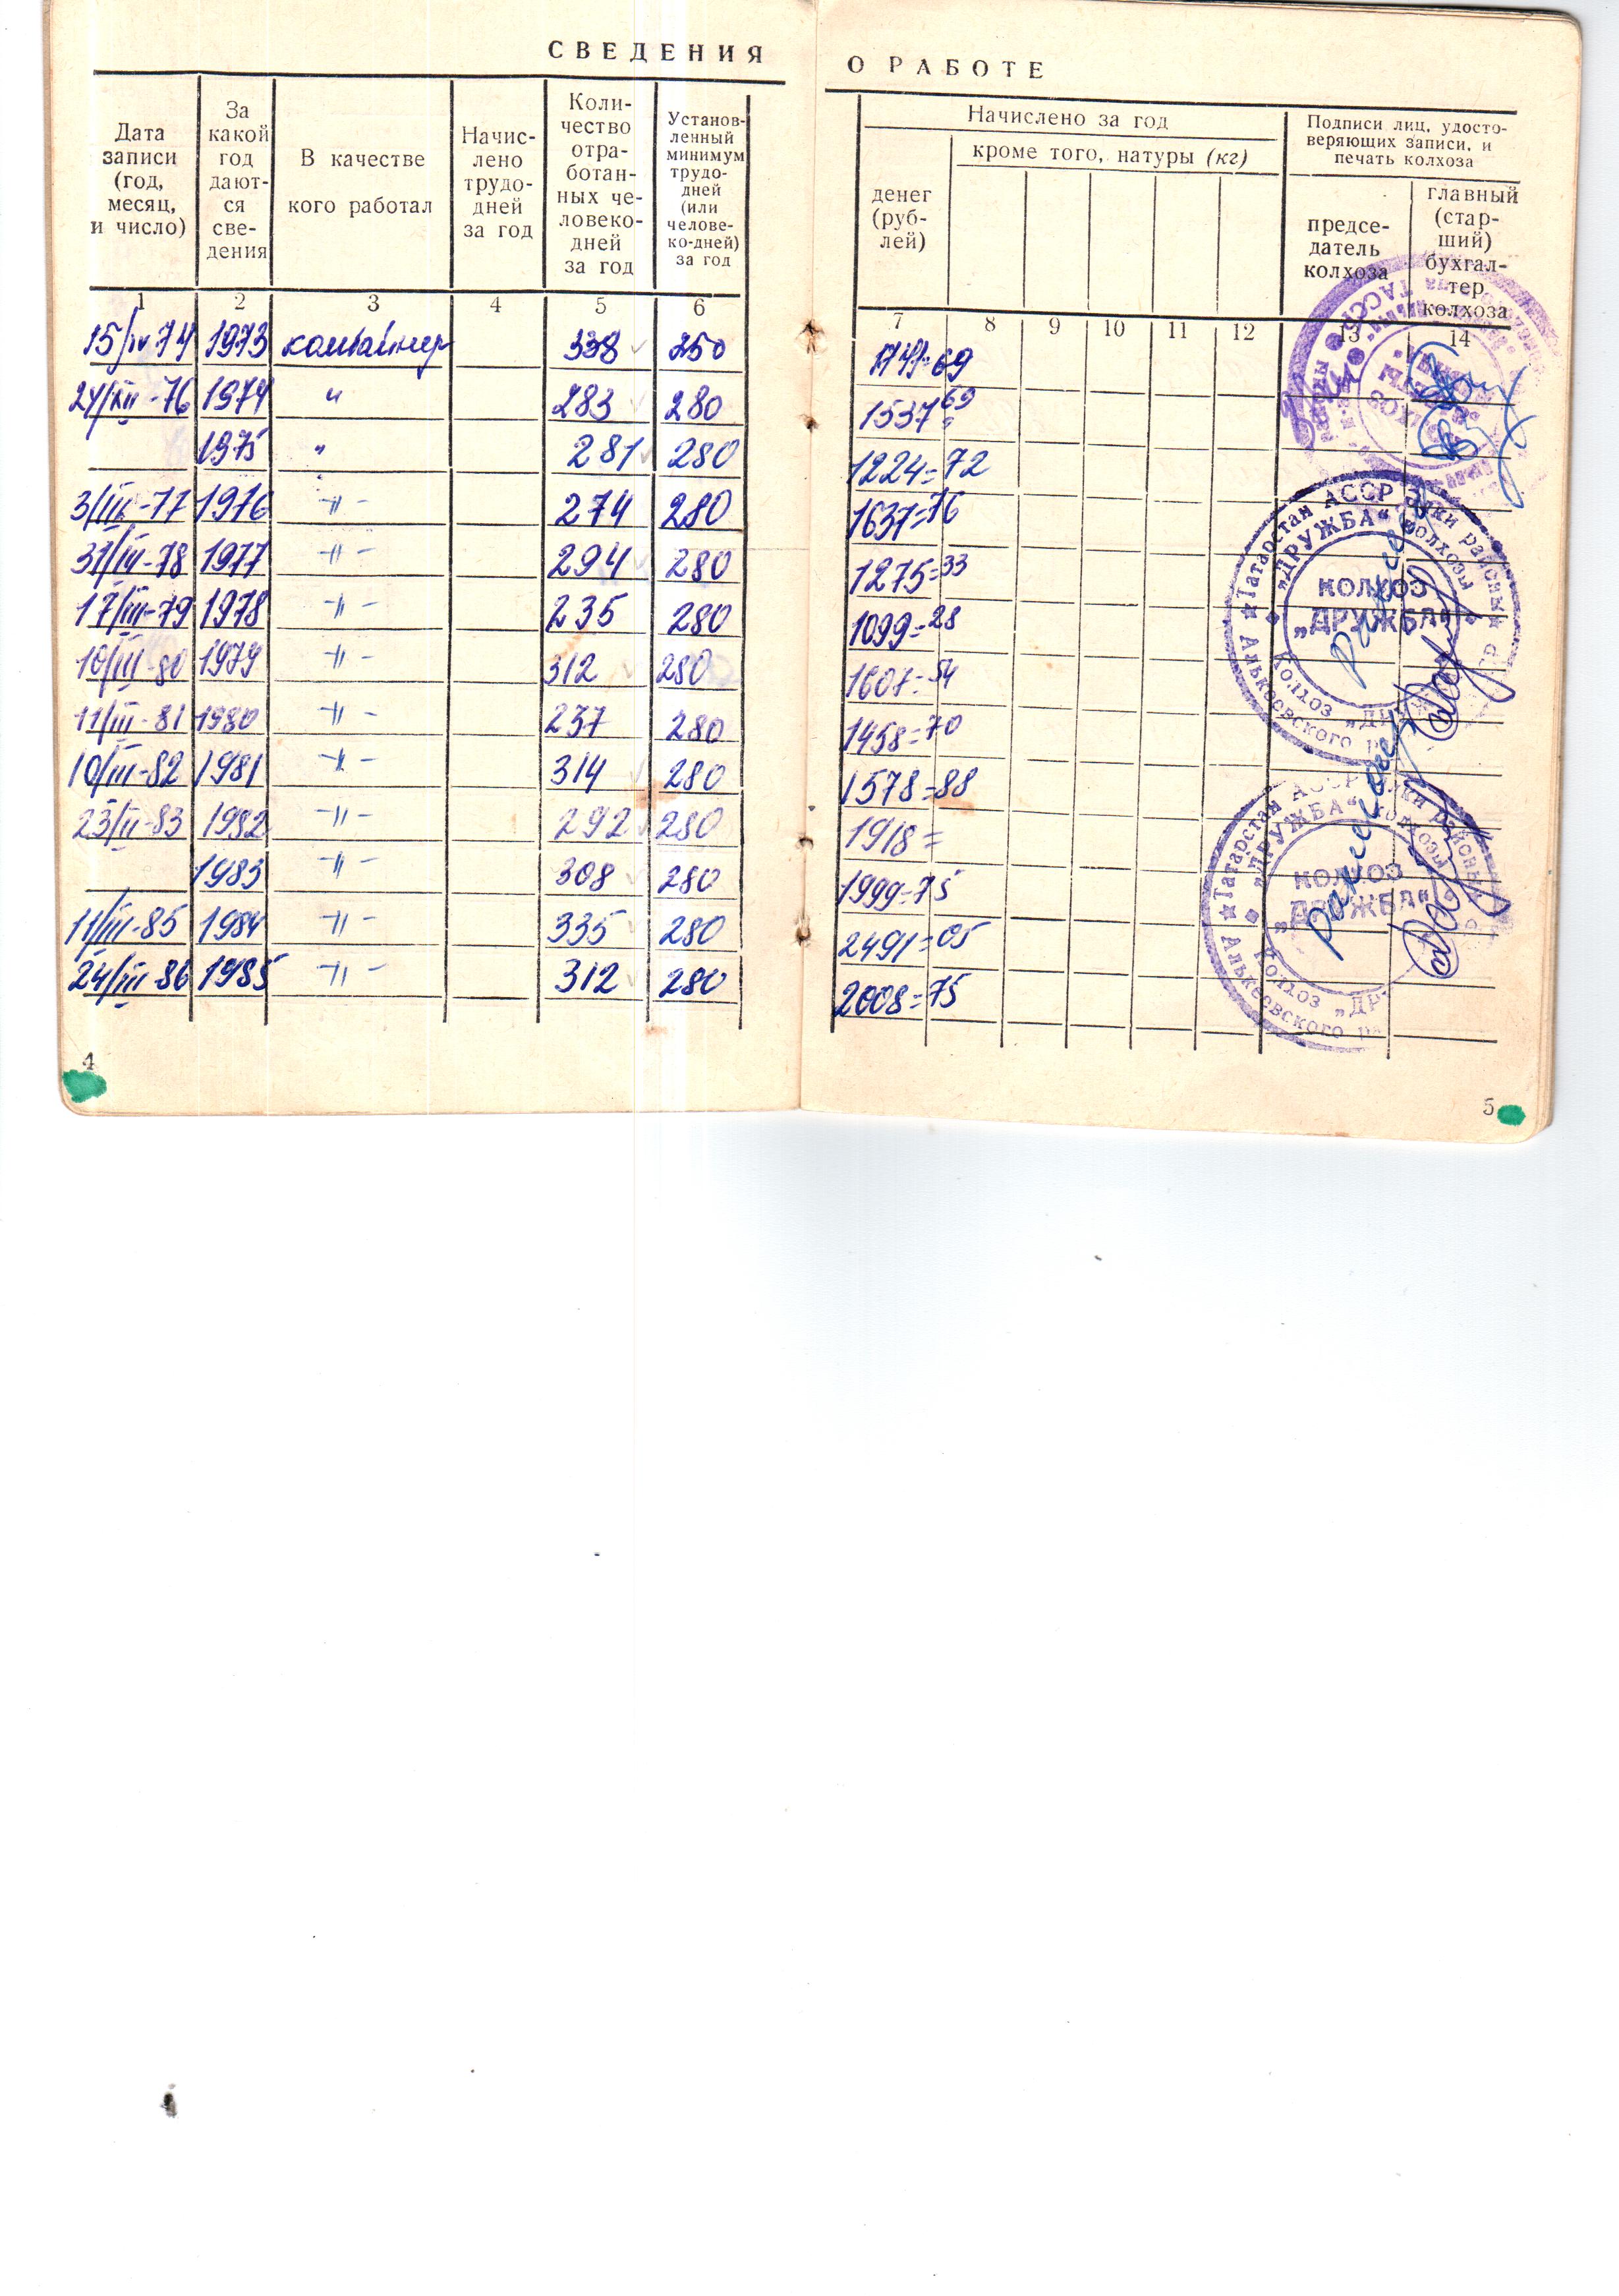 СВЕДЕНИЯ О РАБОТЕ
Дата записи (год, месяц, и число)
За какой год даются сведения
В качестве кого работал
Начислено трудодней за год
Количество отработанных человекодней за год
Установленный минимум трудодней (или человеко-дней) за год
Начислено за год
денег (рублей)
кроме того, натуры (кг)
Подписи лиц, удостоверяющих записи, и печать колхоза
председатель колхоза
главный (старший) бухгалтер колхоза
1 2 3 4 5 6 7 8 9 10 11 12 13 14
15/IV 74 1973 комбайнер 338 250 69
24/XII-76 1974 " 283 280 1537 69
1975 " 281 280 1224=72
1976 -"- 274 280 1637=76
31/III-78 1977 -"- 294 280 1275=33
17/III-79 1978 -"- 235 280 1099=28
10/III-80 1979 -"- 312 280 1607=54
11/III-81 1980 -"- 237 280 1458=70
10/III-82 1981 -"- 314 280 1578=88
23/II-83 1982 -"- 292 280 1918=
1983 -"- 308 280 1999=75
11/III-85 1984 -"- 335 280 2491=05
24/III-86 1985 -"- 312 280 2008=75
Татарстан АССР Әлки районы
„ДРУЖБА“ колхозы
КОЛХОЗ
„ДРУЖБА“
Колхоз
Алькеевского
Татарстан АССР
„ДРУЖБА“
КОЛХОЗ
„ДРУЖБА“
Колхоз
Алькеевского
4
5